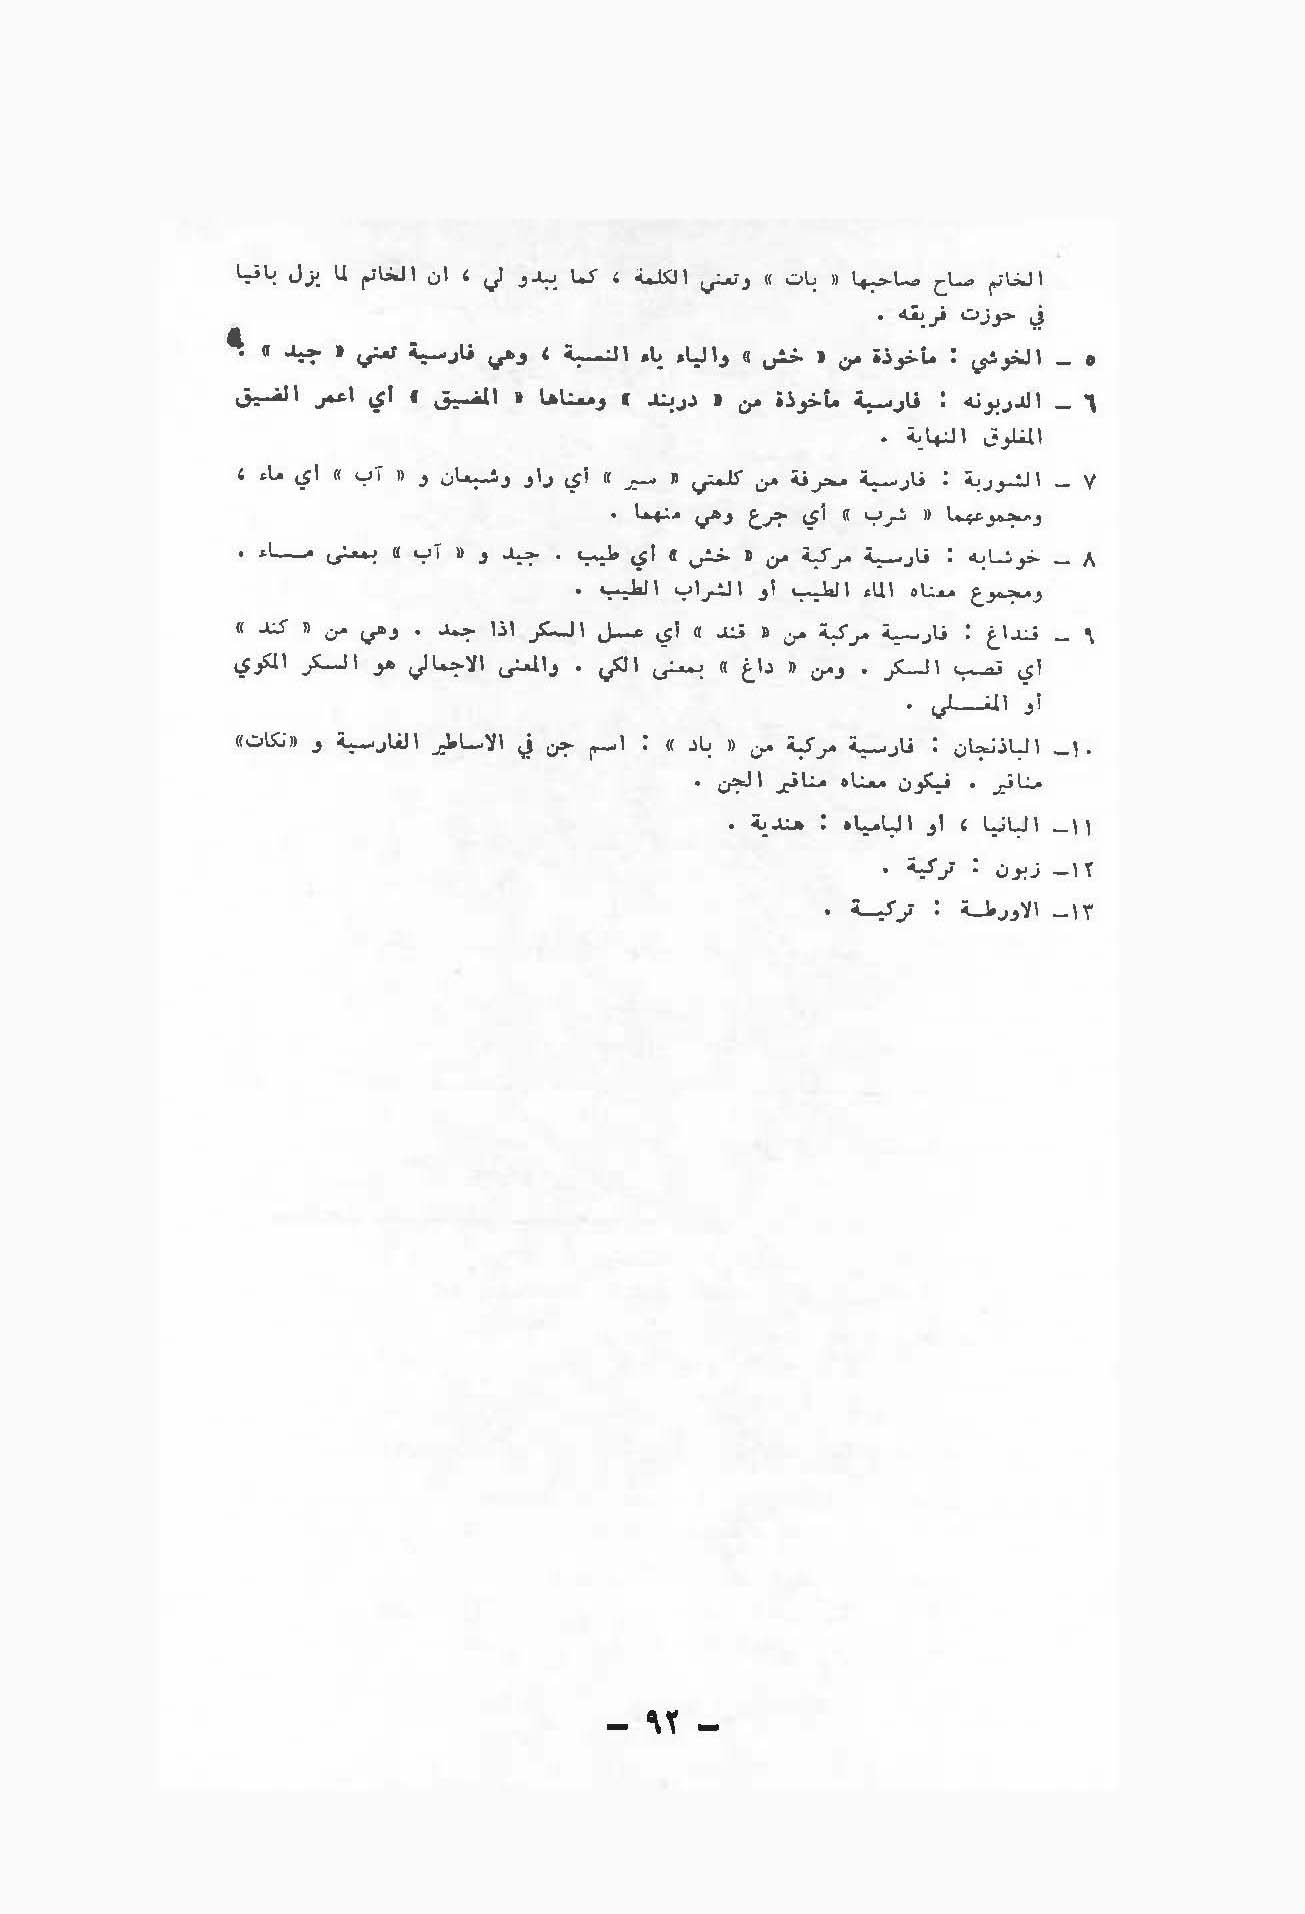 الخاتم صاح صاحبها « بات » وتعني الكلمة ، كما يبدو لي ، ان الخاتم لما يزل باقيا
في حوزت فريقه .
٥ ـ الخوشي : مأخوذة من « خش » والياء ياء النسبة ، وهي فارسية تعني « جيد » .
٦ ـ الدربونه : فارسية مأخوذة من « دربند » ومعناها « المضيق » أي اعمر الضيق
المغلوق النهاية .
٧ ـ الشوربة : فارسية محرفة من كلمتي « سير » أي راو وشبعان و « آب » أي ماء ،
ومجموعهما « شرب » أي جرع وهي منهما .
٨ ـ خوشابه : فارسية مركبة من « خش » أي طيب . جيد و « آب » بمعنى مـــاء .
ومجموع معناه الماء الطيب أو الشراب الطيب .
٩ ـ قنداغ : فارسية مركبة من « قند » أي عسل السكر اذا جمد . وهي من « كند »
أي قصب السكر . ومن « داغ » بمعنى الكي . والمعنى الاجمالي هو السكر المكوي
أو المغـــلي .
١٠ـ الباذنجان : فارسية مركبة من « باد » : اسم جن في الاساطير الفارسية و «نكات»
مناقير . فيكون معناه مناقير الجن .
١١ـ البانيا ، أو البامياه : هندية .
١٢ـ زبون : تركية .
١٣ـ الاورطـة : تركيـة .
ـ ٩٢ ـ